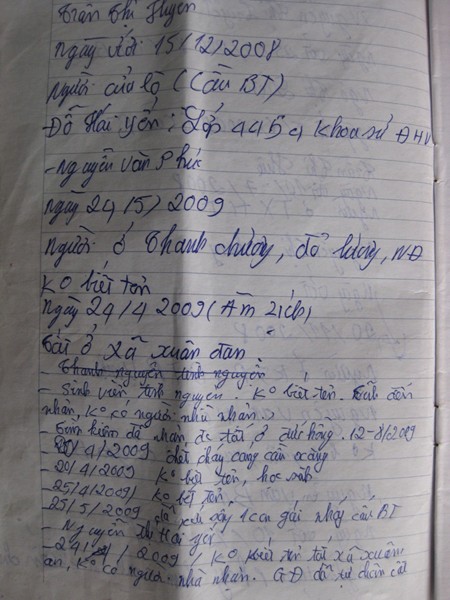 Trần Thị Huyền
Ngày vớt 15/12/2008
Người cửa lò (Cầu BT)
Đỗ Hải Yến: Lớp 44B4 Khoa sử ĐHV
- Nguyễn Văn Phúc
Ngày 24/5/2009
Người ở Thanh chương, đô lương, NĐ
Ko biết tên
Ngày 24/4 2009 (Âm lịch)
Táng ở xã xuân đan
Thanh nguyên tình nguyện
- Sinh viên tình nguyện. Ko biết tên. đến
nhận, Ko có người nhà nhận
- Tìm kiếm đã nhận, ở đức hồng. 12-8/2009
/4/2009 chết cháy cây xăng
20/4/2009 Ko biết tên, học sinh
25/4/2009 Ko biết tên
25/5/2009 gây 1 con gái nhảy cầu BT
- Nguyễn thị Hải
- 24/ /2009, Ko biết tên xã xuân
an, Ko có người nhà nhận. GĐ